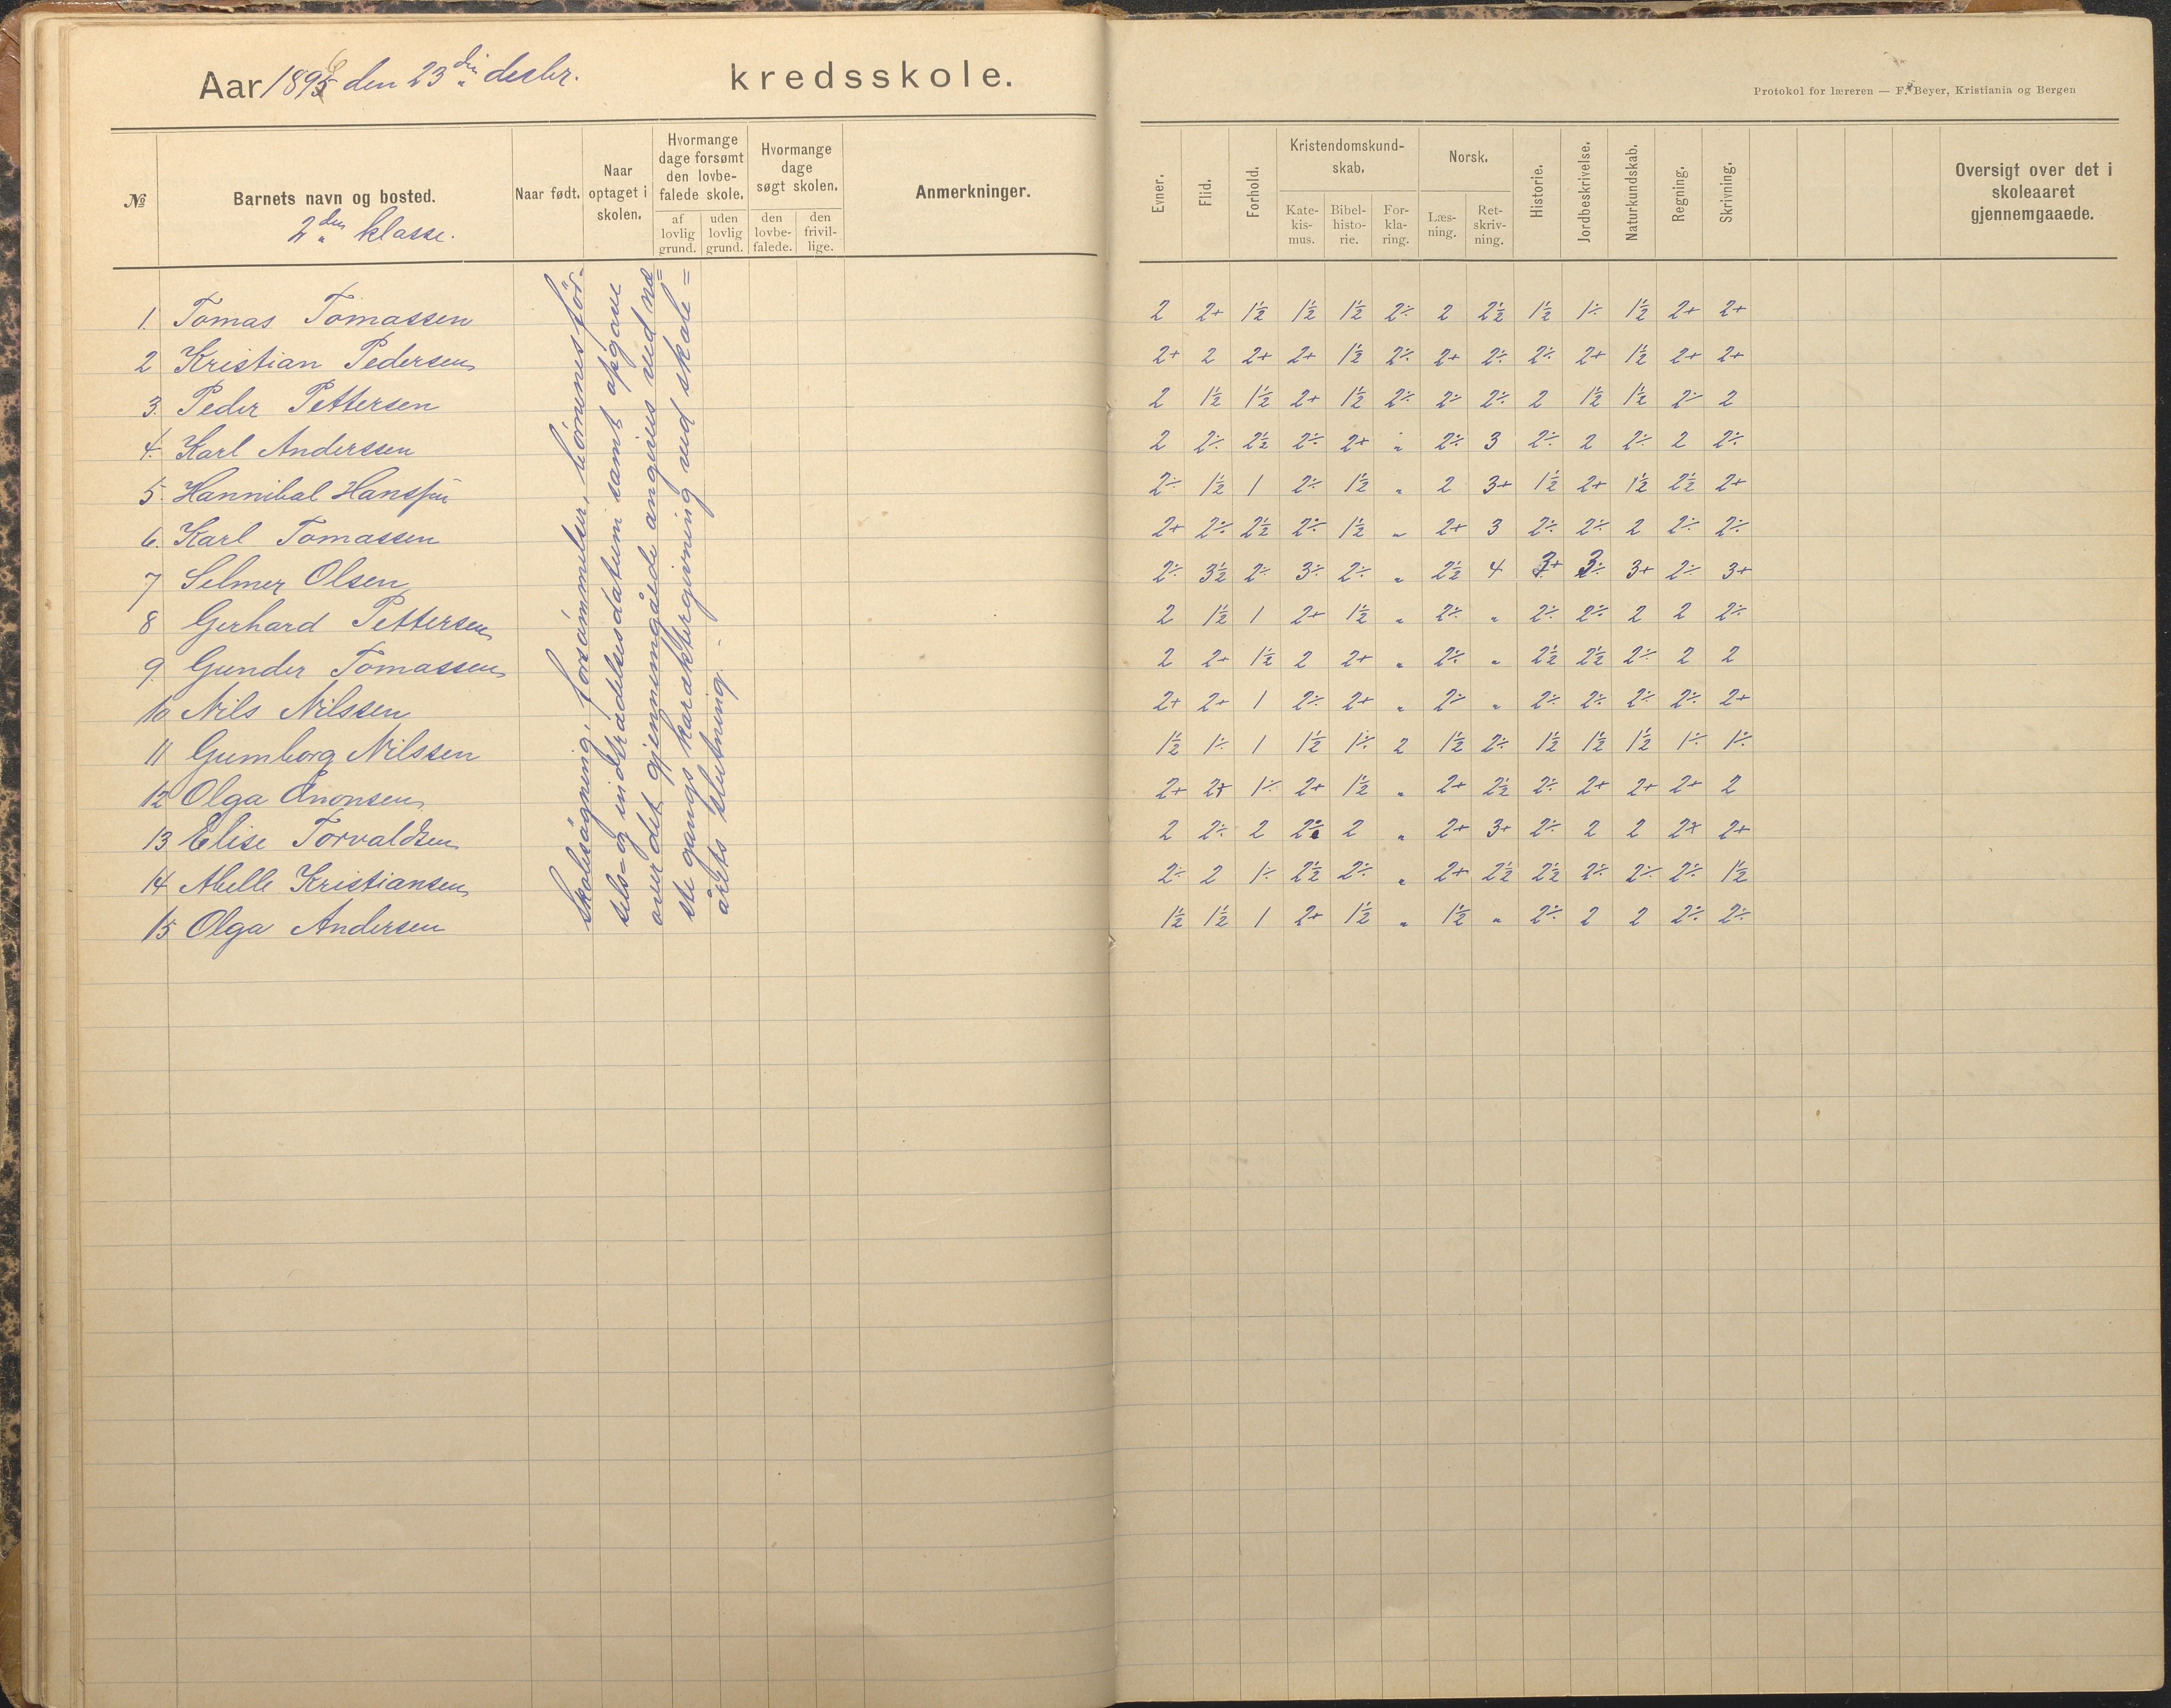 Aar 1896 den 23 din desbr. kredsskole.
Protokol for læreren — F. Beyer, Kristiania og Bergen
№ Barnets navn og bosted. Naar født. Naar optaget i skolen. Hvormange dage forsømt den lovbefalede skole. af lovlig grund. uden lovlig grund. Hvormange dage søgt skolen. den lovbefalede. den frivillige. Anmerkninger.
Evner. Flid. Forhold. Kristendomskundskab. Katekismus. Bibelhistorie. Forklaring. Norsk. Læsning. Retskrivning. Historie. Jordbeskrivelse. Naturkundskab. Regning. Skrivning. Oversigt over det i skoleaaret gjennemgaaede.
2 den klasse.
1. Tomas Tomassen 2 2+ 1½ 1½ 1½ 2÷ 2 2½ 1½ 1÷ 1½ 2+ 2+
2 Kristian Pedersen 2+ 2 2+ 2+ 1½ 2÷ 2+ 2÷ 2÷ 2+ 1½ 2+ 2+
3. Peder Pettersen 2 1½ 1½ 2+ 1½ 2÷ 2÷ 2÷ 2 1½ 1½ 2÷ 2
4. Karl Anderssen 2 2÷ 2½ 2÷ 2+ " 2÷ 3 2÷ 2 2÷ 2 2÷
5. Hannibal Hanssen 2÷ 1½ 1 2÷ 1½ " 2 3+ 1½ 2+ 1½ 2½ 2+
6. Karl Tomassen 2+ 2÷ 2½ 2÷ 1½ " 2+ 3 2÷ 2÷ 2 2÷ 2÷
7 Selmer Olsen 2÷ 3½ 2÷ 3÷ 2÷ " 2½ 4 3+ 3÷ 3+ 2÷ 3+
8 Gerhard Pettersen 2 1½ 1 2+ 1½ " 2÷ " 2÷ 2÷ 2 2 2÷
9. Gunder Tomassen 2 2+ 1½ 2 2+ " 2÷ " 2½ 2½ 2÷ 2 2
10 Nils Nilssen 2+ 2+ 1 2÷ 2+ " 2÷ " 2÷ 2÷ 2÷ 2÷ 2+
11 Gumborg Nilssen 1½ 1÷ 1 1½ 1÷ 2 1½ 2÷ 1½ 1½ 1½ 1÷ 1÷
12 Olga Enonsen 2+ 2+ 1÷ 2+ 1½ " 2+ 2½ 2÷ 2+ 2+ 2+ 2
13 Elise Torvaldsen 2 2÷ 2 2÷ 2 " 2+ 3+ 2÷ 2 2 2+ 2+
14 Abelle Kristiansen 2÷ 2 1÷ 2½ 2÷ " 2+ 2½ 2½ 2÷ 2÷ 2÷ 1½
15 Olga Andersen 1½ 1½ 1 2+ 1½ " 1½ " 2÷ 2 2 2÷ 2÷
Skolesøgning, forsømmelser, børnenes fød-
sels- og indtrædelsesdatum samt opgave
over det gjennemgåede angives ved næ=
ste gangs karaktergivning ved skole=
årets slutning.